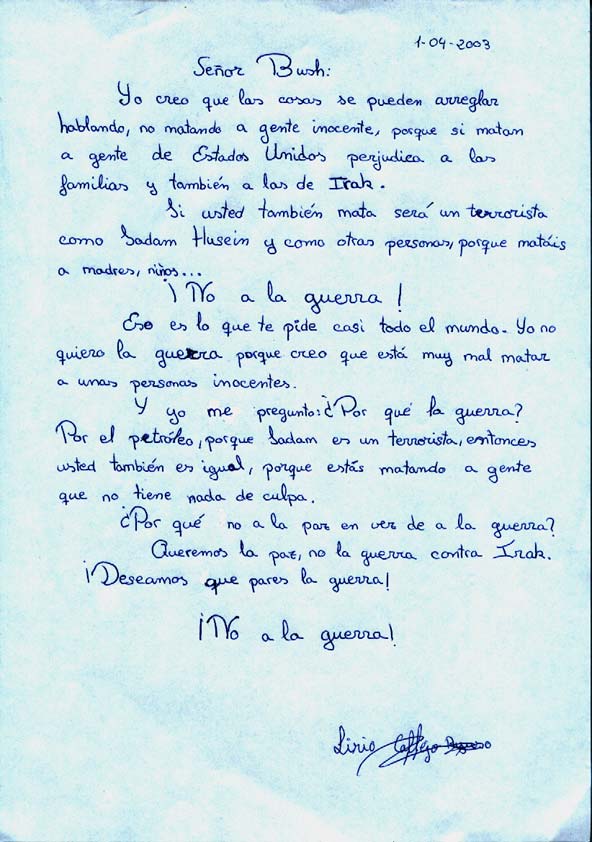 1-04-2003
Señor Bush:
Yo creo que las cosas se pueden arreglar
hablando, no matando a gente inocente, porque si matan
a gente de Estados Unidos perjudica a las
familias y también a las de Irak.
Si usted también mata será un terrorista
como Sadam Husein y como otras personas, porque matáis
a madres, niños...
¡No a la guerra!
Eso es lo que te pide casi todo el mundo. Yo no
quiero la guerra porque creo que está muy mal matar
a unas personas inocentes.
Y yo me pregunto: ¿Por qué la guerra?
Por el petróleo, porque Sadam es un terrorista, entonces
usted también es igual, porque estás matando a gente
que no tiene nada de culpa.
¿Por qué no a la paz en vez de a la guerra?
Queremos la paz, no la guerra contra Irak.
¡Deseamos que pares la guerra!
¡No a la guerra!
Lirio